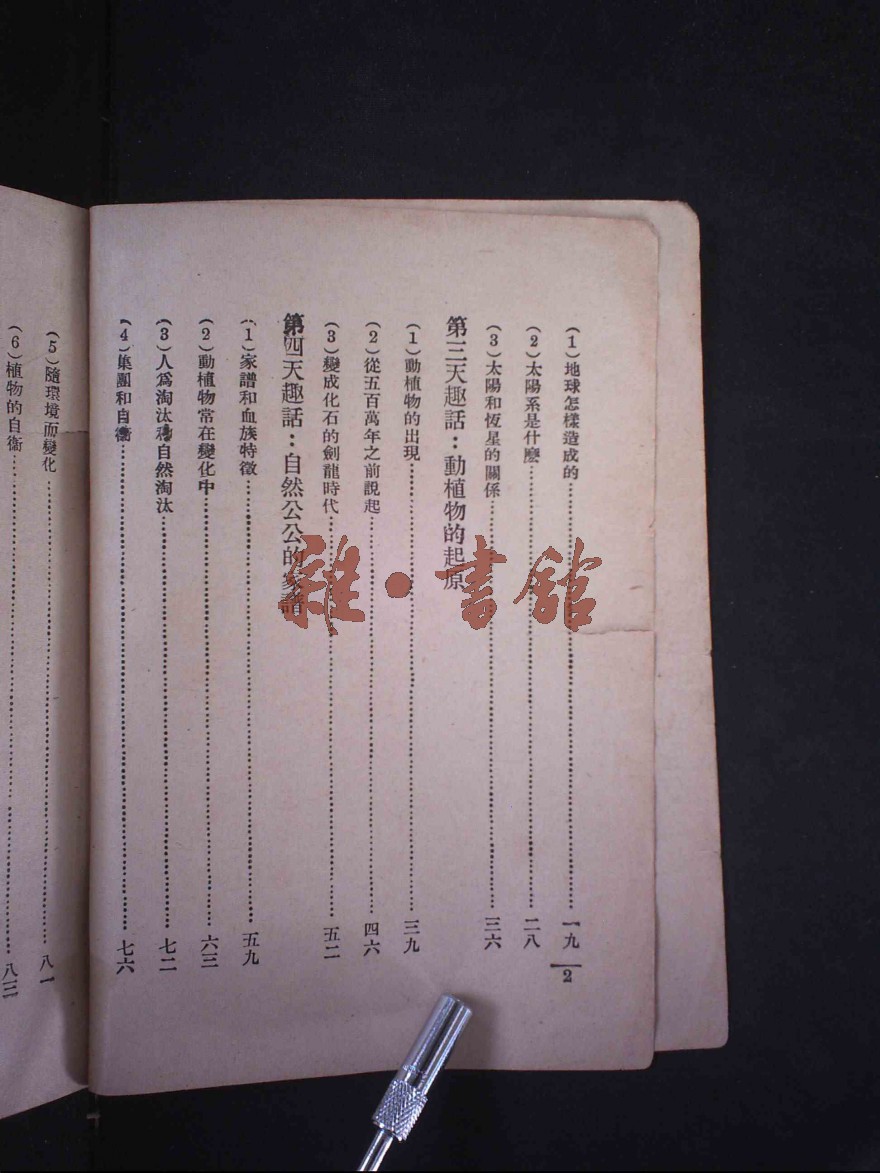 (1)地球怎樣造成的……一九
(2)太陽系是什麼……二八
(3)太陽和恆星的關係……三六
第三天趣話：動植物的起原
(1)動植物的出現……三九
(2)從五百萬年之前說起……四六
(3)變成化石的劍龍時代……五二
第四天趣話：自然公公的家譜
(1)家譜和血族特徵……五九
(2)動植物常在變化中……六三
(3)人為淘汰和自然淘汰……七二
(4)集團和自衞……七六
(5)隨環境而變化……八一
(6)植物的自衞……八三
2
雜·書館